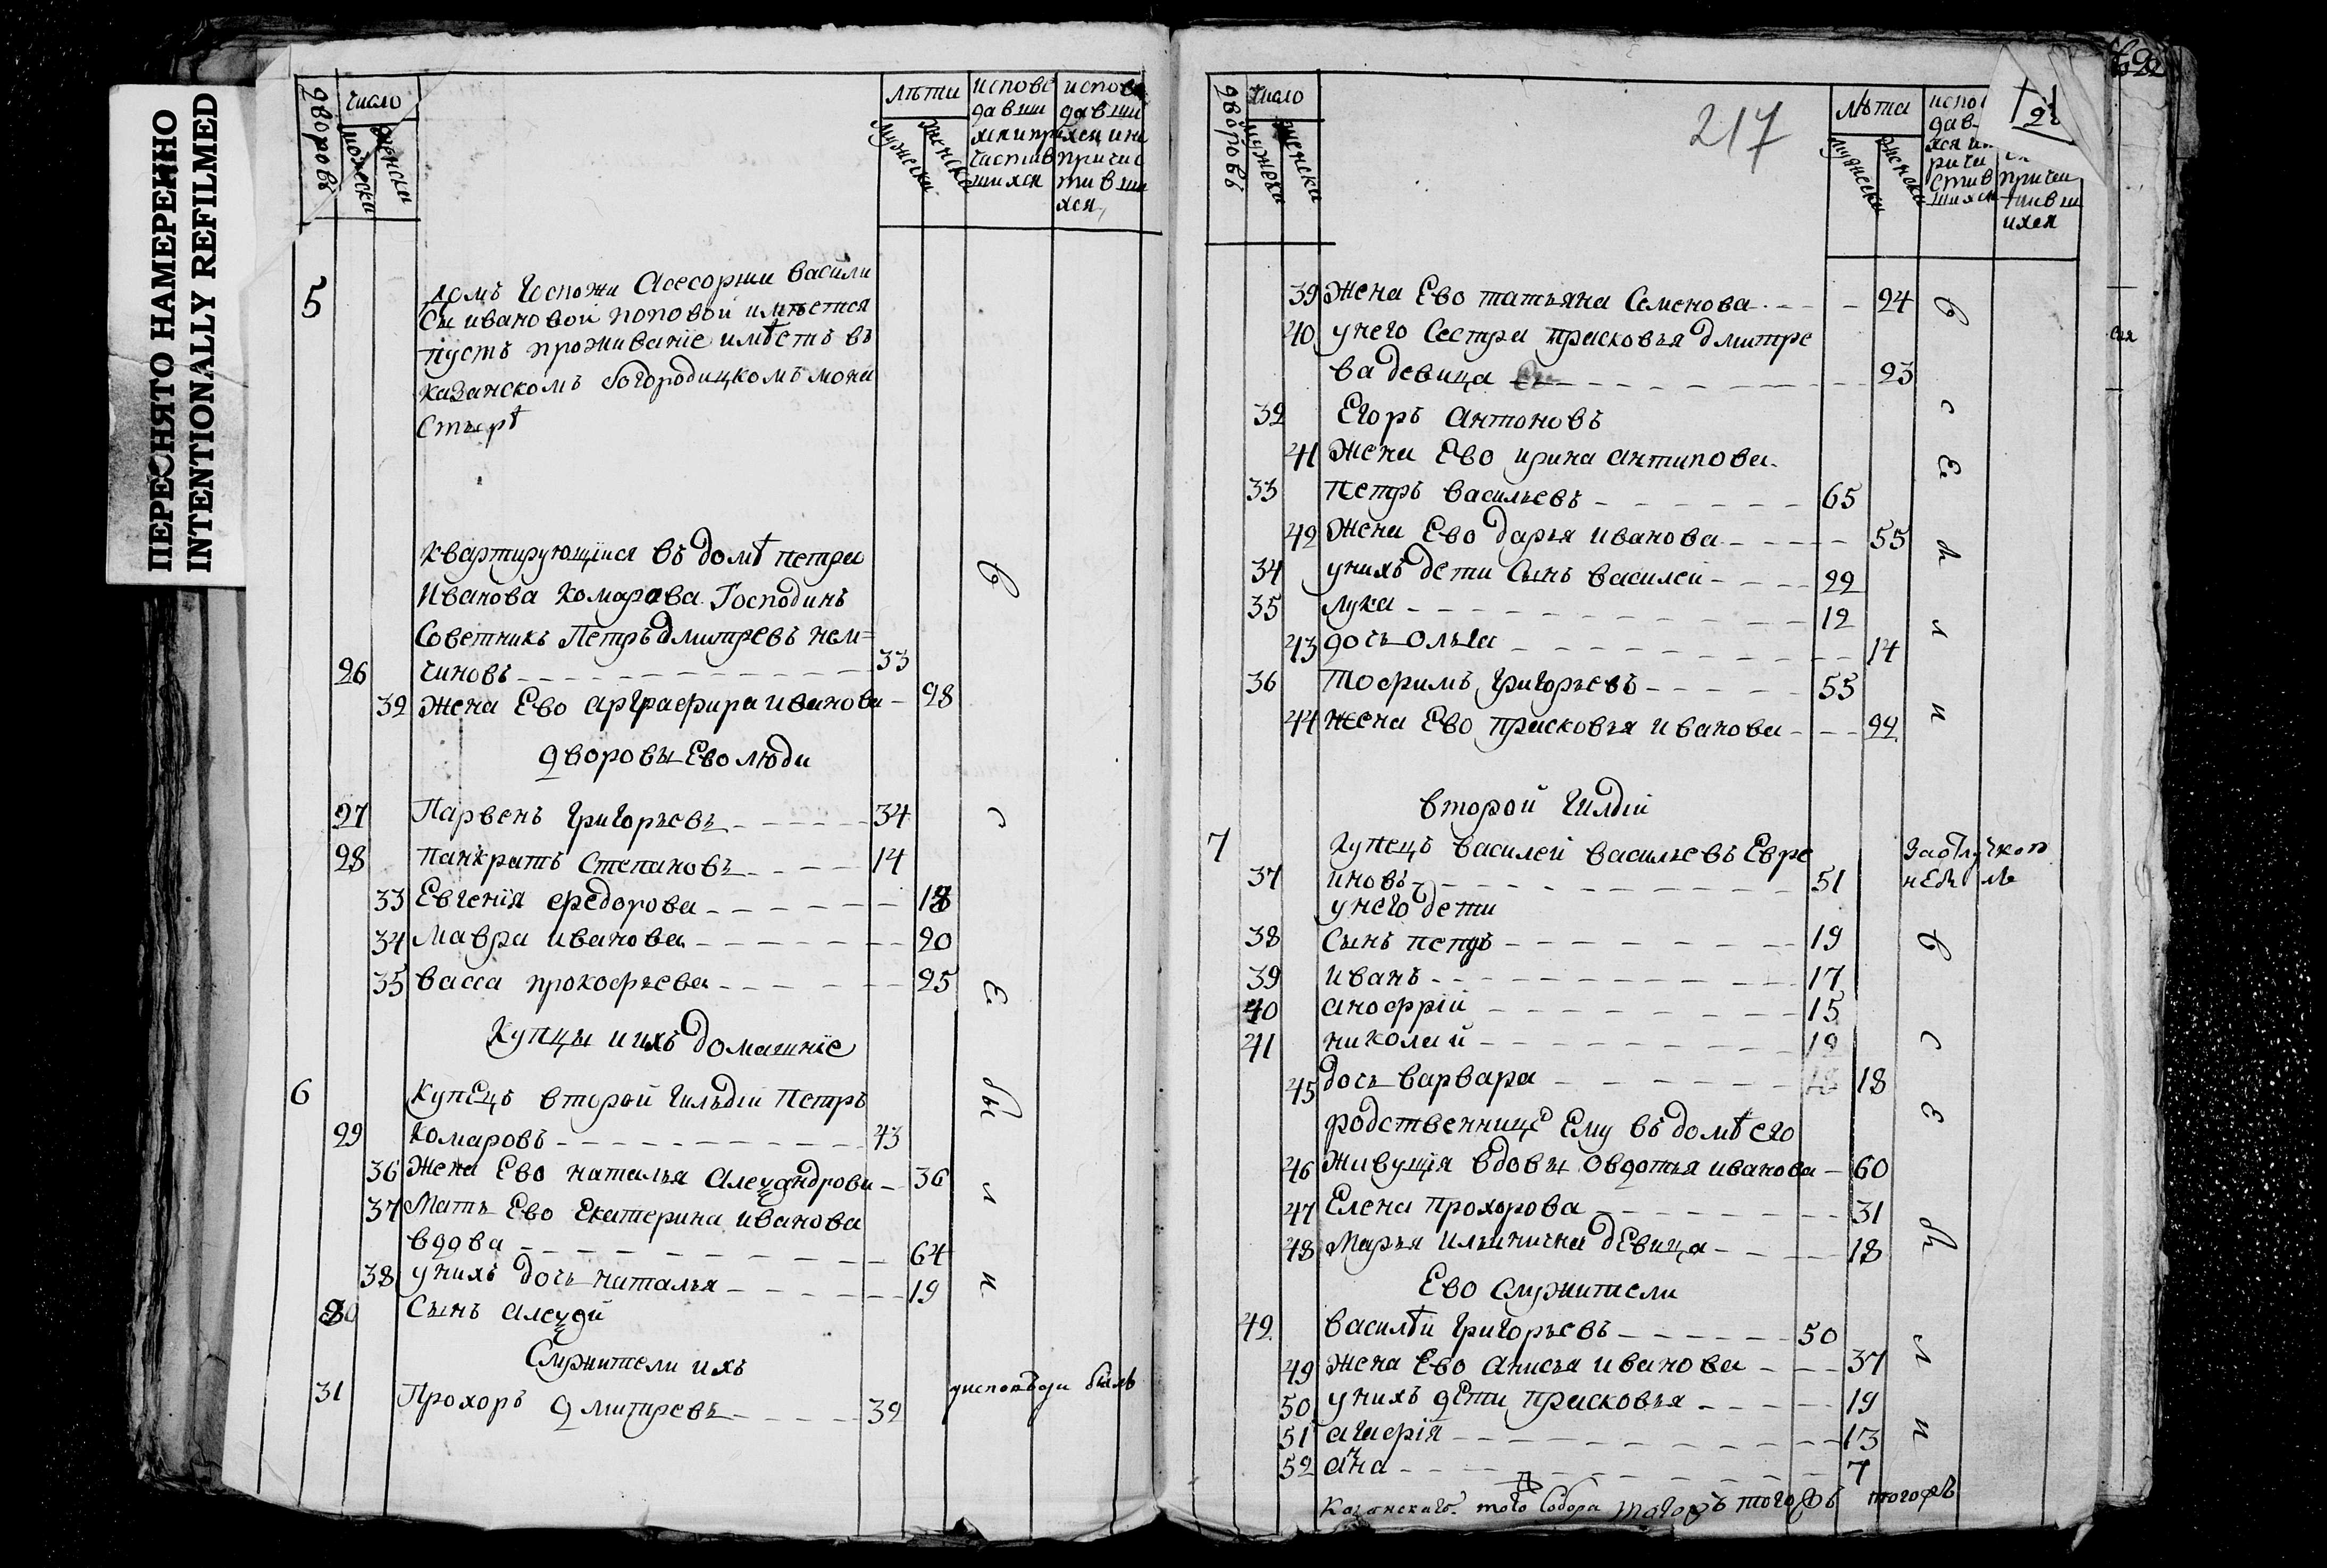 ПЕРЕСНЯТО НАМЕРЕННО
INTENTIONALLY REFILMED
дворовъ
число
мужеска
женска
лѣта
мужеска
женска
исповѣ
давши
хся и при
частив
шихся
испов
давши
хся и не
причас
тивши
хся
5
домъ Госпожи Асесорши васили
сы ивановой поповой имѣется
пустъ проживание имѣетъ въ
казанскомъ богородицкомъ мона
стырѣ
квартирующїися въ домѣ петра
Иванова комарова Господинъ
Советникъ Петръ дмитревъ нем=
26 чиновъ 33
32 жена Ево аграфира иванова 28
дворовы Ево люди
27 Парвенъ григорьевъ 34
28 панкратъ степановъ 14
33 Евгенїя федорова
34 Мавра иванова 20
35 васса прокофьева 25
Купцы и ихъ домашнїе
6 Купецъ второй гильдїи Петръ
29 комаровъ 43
36 Жена Ево наталья Алеѯандрова 36
37 Мать Ево Екатерина иванова
вдова 64
38 у нихъ дочь наталья 19
30 Сынъ алеѯѣй
Служители ихъ
31 Прохоръ дмитревъ 32 у исповѣди былъ
в с Е бы л и
217
дворовъ
число
мужеска
женска
лѣта
мужеска
женска
39 Жена Ево татьяна Семенова 24
40 у него Сестра прасковья дмитре
ва девица 23
32 Егоръ антоновъ
41 Жена Ево ирина антипова
33 Петръ васильевъ 65
42 Жена Ево дарья иванова 55
34 у нихъ дети Сынъ василей 22
35 лука 12
43 дочь ольга 14
36 Тофимъ григорьевъ 55
44 жена Ево прасковья иванова 22
в с Е бы л и
второй гилдїи
7 Купецъ василей васильевъ Евре
37 иновъ 51
у него дети
38 Сынъ петръ 19
39 иванъ 17
40 анофрїй 15
41 николай 12
45 дочь варвара 18
родственницѣ Ему въ домѣ его
46 живущїя вдовы овдотья иванова 60
47 Елена прохорова 31
48 Марья ильинична дЕвица 18
Ево Служители
42 василѣй григорьевъ 50
49 жена Ево анисья иванова 37
50 у нихъ дЕти прасковья 19
51 агафїя 13
52 анна 7
в с Е бы л и
казанскаго того Собора